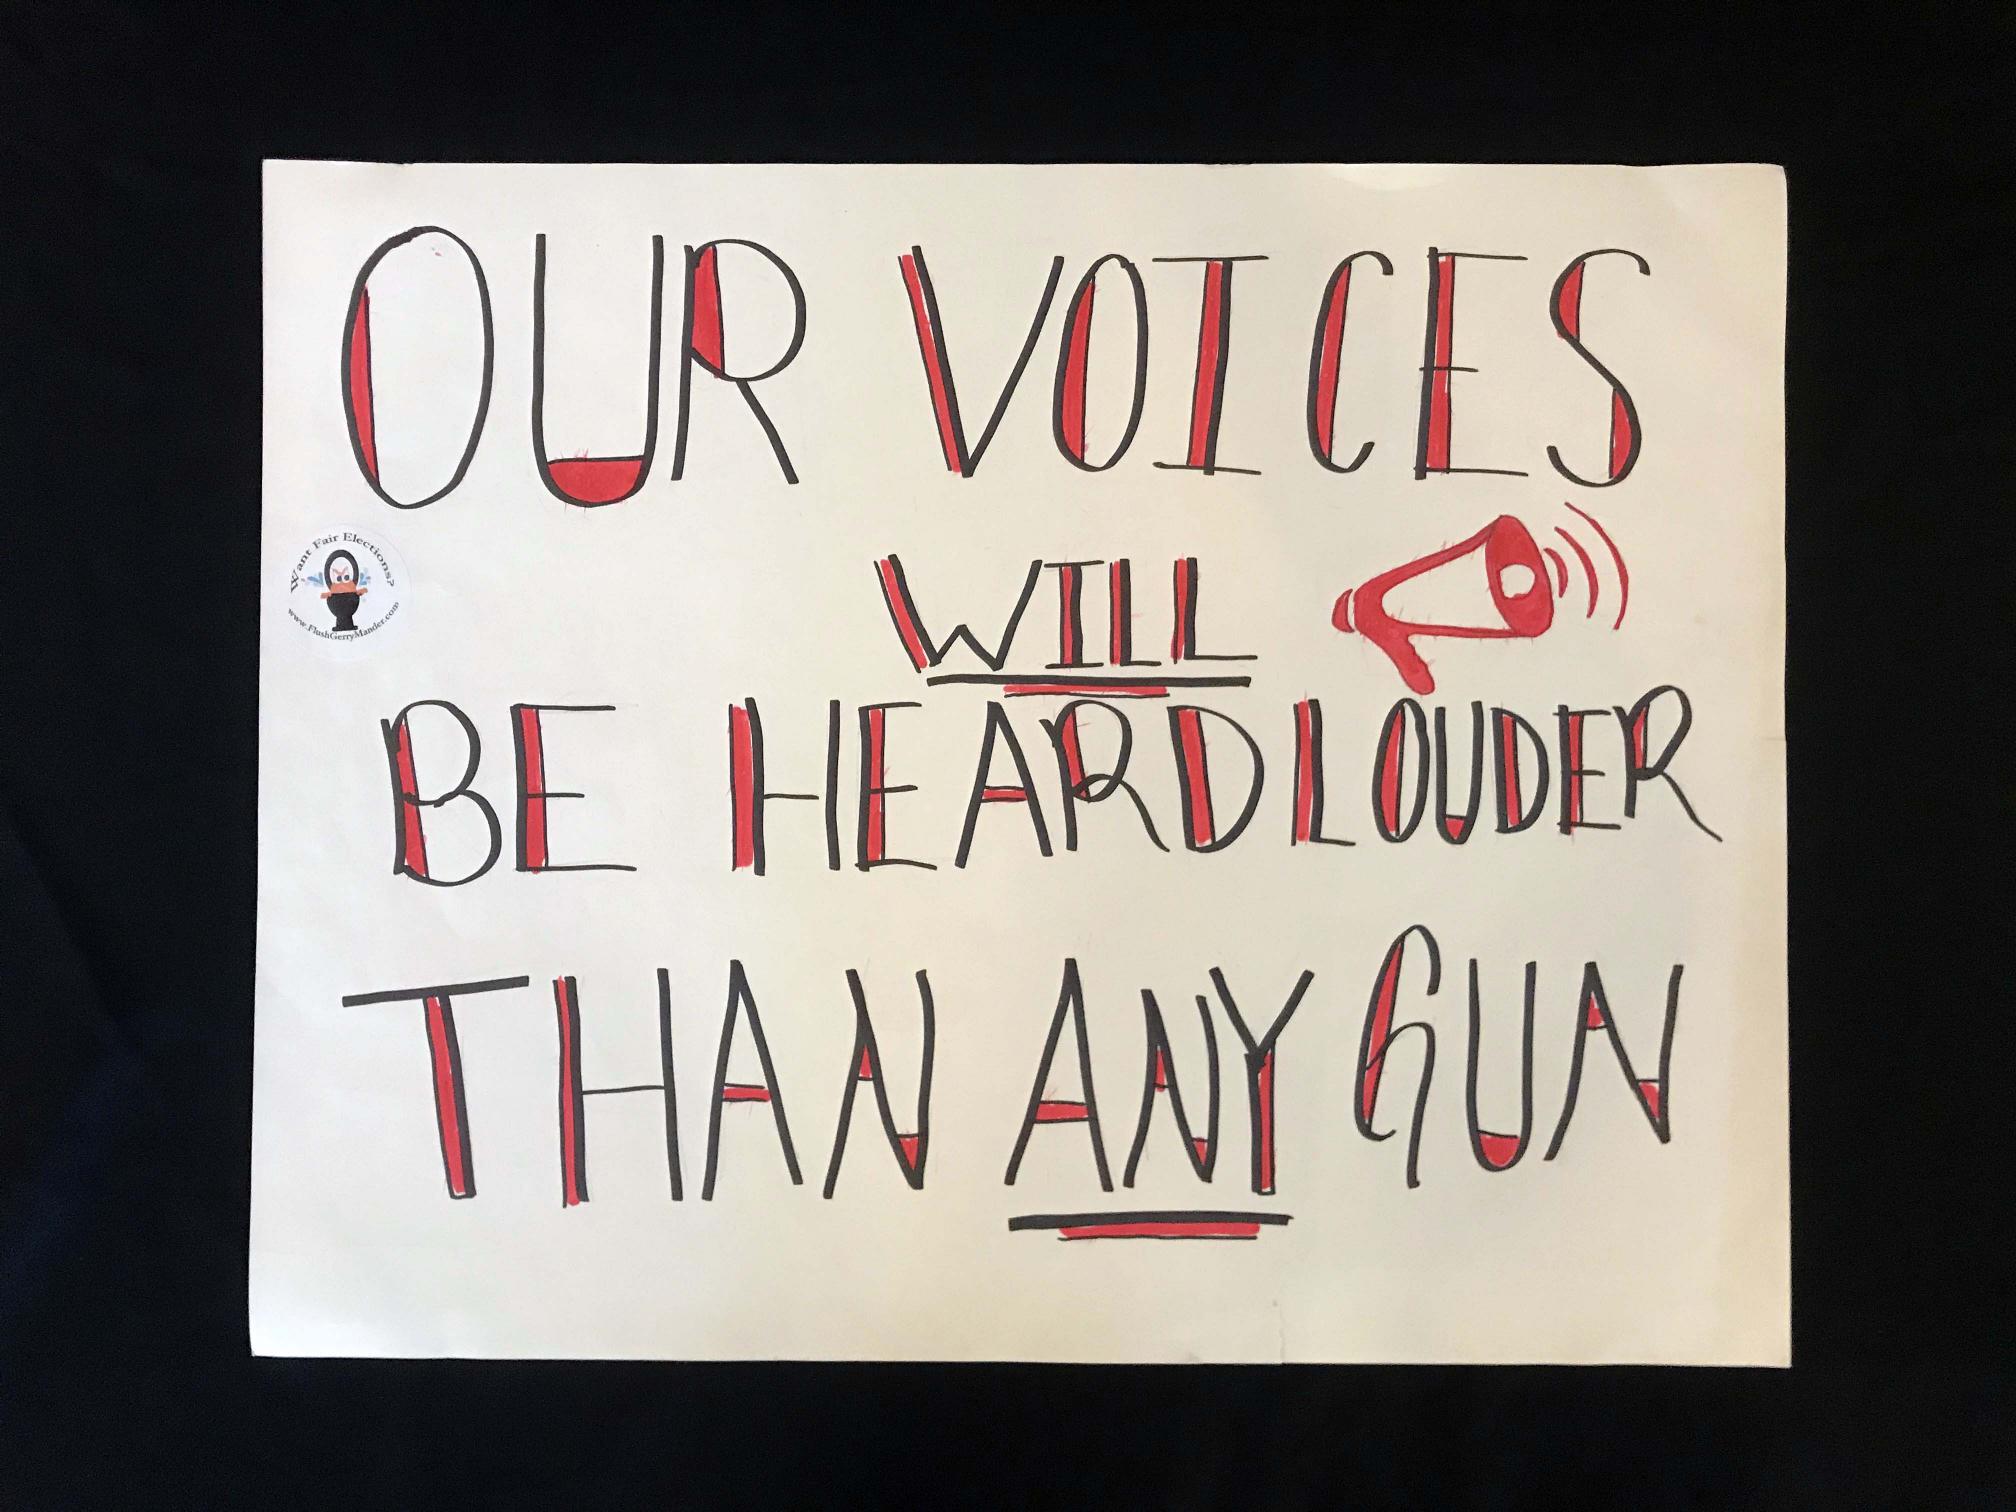 OUR VOICES
WILL
BE HEARD LOUDER
THAN ANY GUN
Want Fair Elections?
www.FlushGerryMander.com